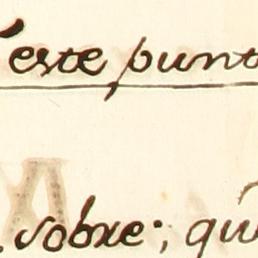 este punt
sobre; qu